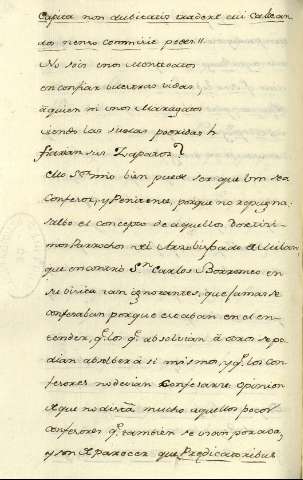 Capita non dubitatis tradere cui calcean
dos nemo commisit pedes.
No sois unos Mentecatos
en confiar vuestras vidas,
à quien ni unos Marragatos
viendo las suelas podridas
fiaran sus Zapatos?
Ello S.r mio bien puede ser que Vm sea
Confesor, y Penitente, porque no repugna:
salbo el concepto de aquellos Doctisi-
mos Parrochos del Arzobispado de Milan,
que encontró S.n Carlos Borromeo en
su visita tan ignorantes, que jamas se
confesaban porque estaban en el en-
tender, q.e los q.e absolvian à otros se po-
dian absolber à si mismos, y q.e los con-
fesores no devian Confesarse. Opinion
de que no dista mucho aquellos pocos
confesores q.e tambien se usan por aca,
y son de parecer que Predicatoribus